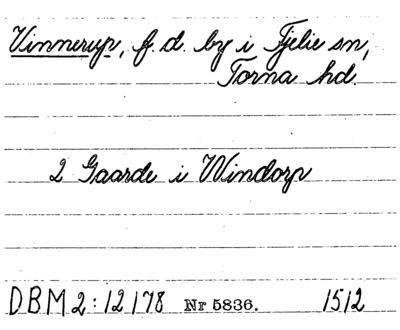 Vinnerup, f.d. by i Fjelie sn,
Torna hd.
2 Gaarde i Windorp
DBM 2:12178 Nr 5836. 1512